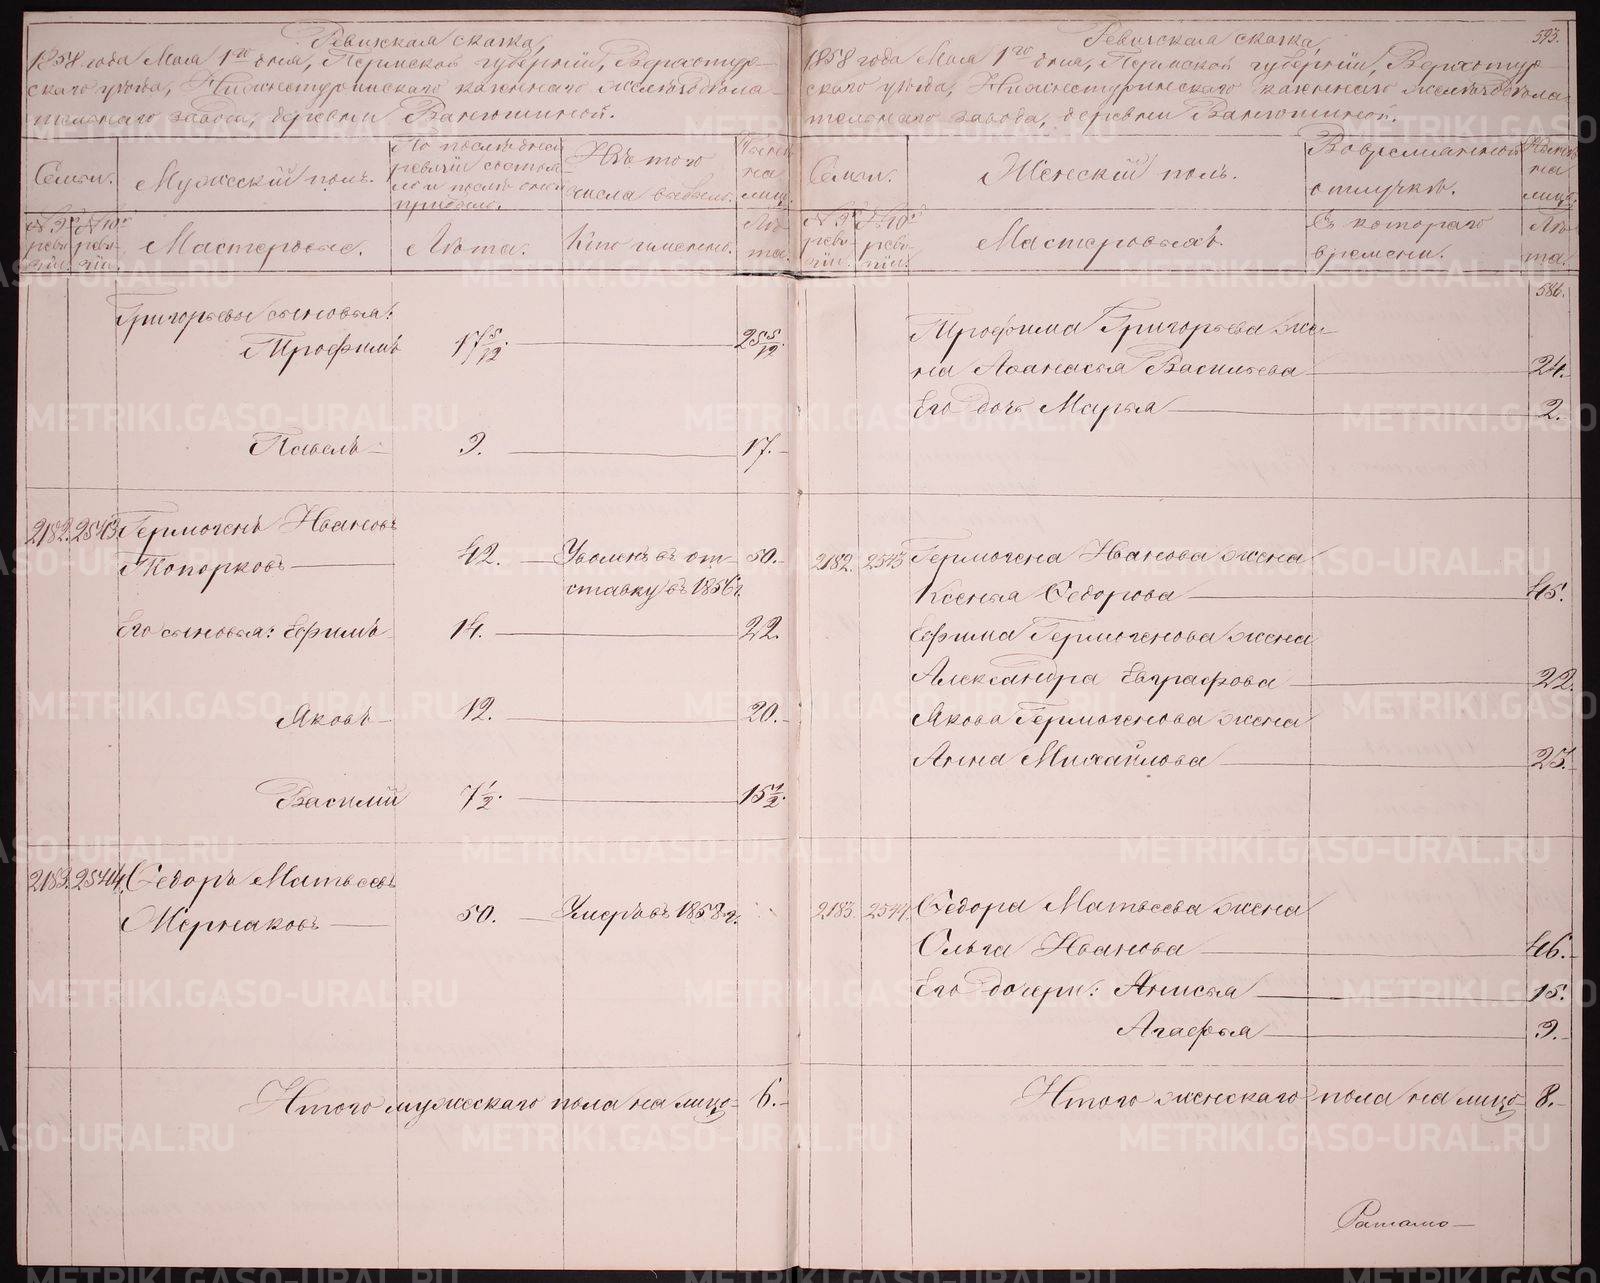 Ревизская сказка,
1858 года Мая 1го дня, Пермской губернии, Верхотур-
скаго уезда, Нижнетуринскаго казеннаго железоделa-
тельнаго завода, деревни Ванюшиной.
Семьи.
Мужеский полъ.
По последней
ревизии состоя-
ло и после оной
прибыло.
Изъ того
числа выбыло.
Ныне
на
лицо.
№ 9й
реви-
зии.
№ 10й
реви-
зии.
Мастеровые.
Лета.
Кто именно.
Ле-
та.
Григорьевы сыновья:
Трофимъ 17 5/12. 25 5/12.
Павелъ 9. 17.
2182. 2543 Гермогенъ Ивановъ
Топорковъ 42. Уволенъ въ от- 50.
ставку въ 1856 г.
Его сыновья: Ефимъ 14. 22.
Яковъ 12. 20.
Василий 7 1/2. 15 1/2.
2183. 2544. Федоръ Матвеевъ
Мерзаковъ 50. Умеръ въ 1858 г.
Итого мужескаго пола на лицо 6.
593.
Ревизская сказка,
1858 года Мая 1го дня, Пермской губернии, Верхотур-
скаго уезда, Нижнетуринскаго казеннаго железодела-
тельнаго завода, деревни Ванюшиной.
Семьи.
Женский полъ.
Во временной
отлучке.
Ныне
на
лицо.
№ 9й
реви-
зии.
№ 10й
реви-
зии.
Мастеровыхъ.
Съ котораго
времени.
Ле-
та.
586.
Трофима Григорьева же-
на Афанасья Васильева 24.
Его дочь Марья 2.
2182. 2543 Гермогена Иванова жена
Ксенья Федорова 45.
Ефима Гермогенова жена
Александра Евграфова 22.
Якова Гермогенова жена
Анна Михайлова 23.
2183. 2544. Федора Матвеева жена
Ольга Иванова 46.
Его дочери: Анисья 15.
Агафья 9.
Итого женскаго пола на лицо 8.
METRIKI.GASO-URAL.RU